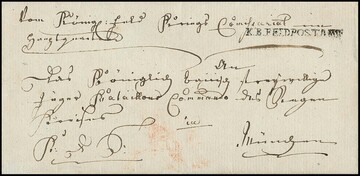 Vom Königl: Feld Kriegs Commissariat
K.B. FELDPOST
Hauptquartier
An
Das Königlich baierische freywillige
Jäger Bataillons Commando des Regen
Kreises
in
K: D: S:
München